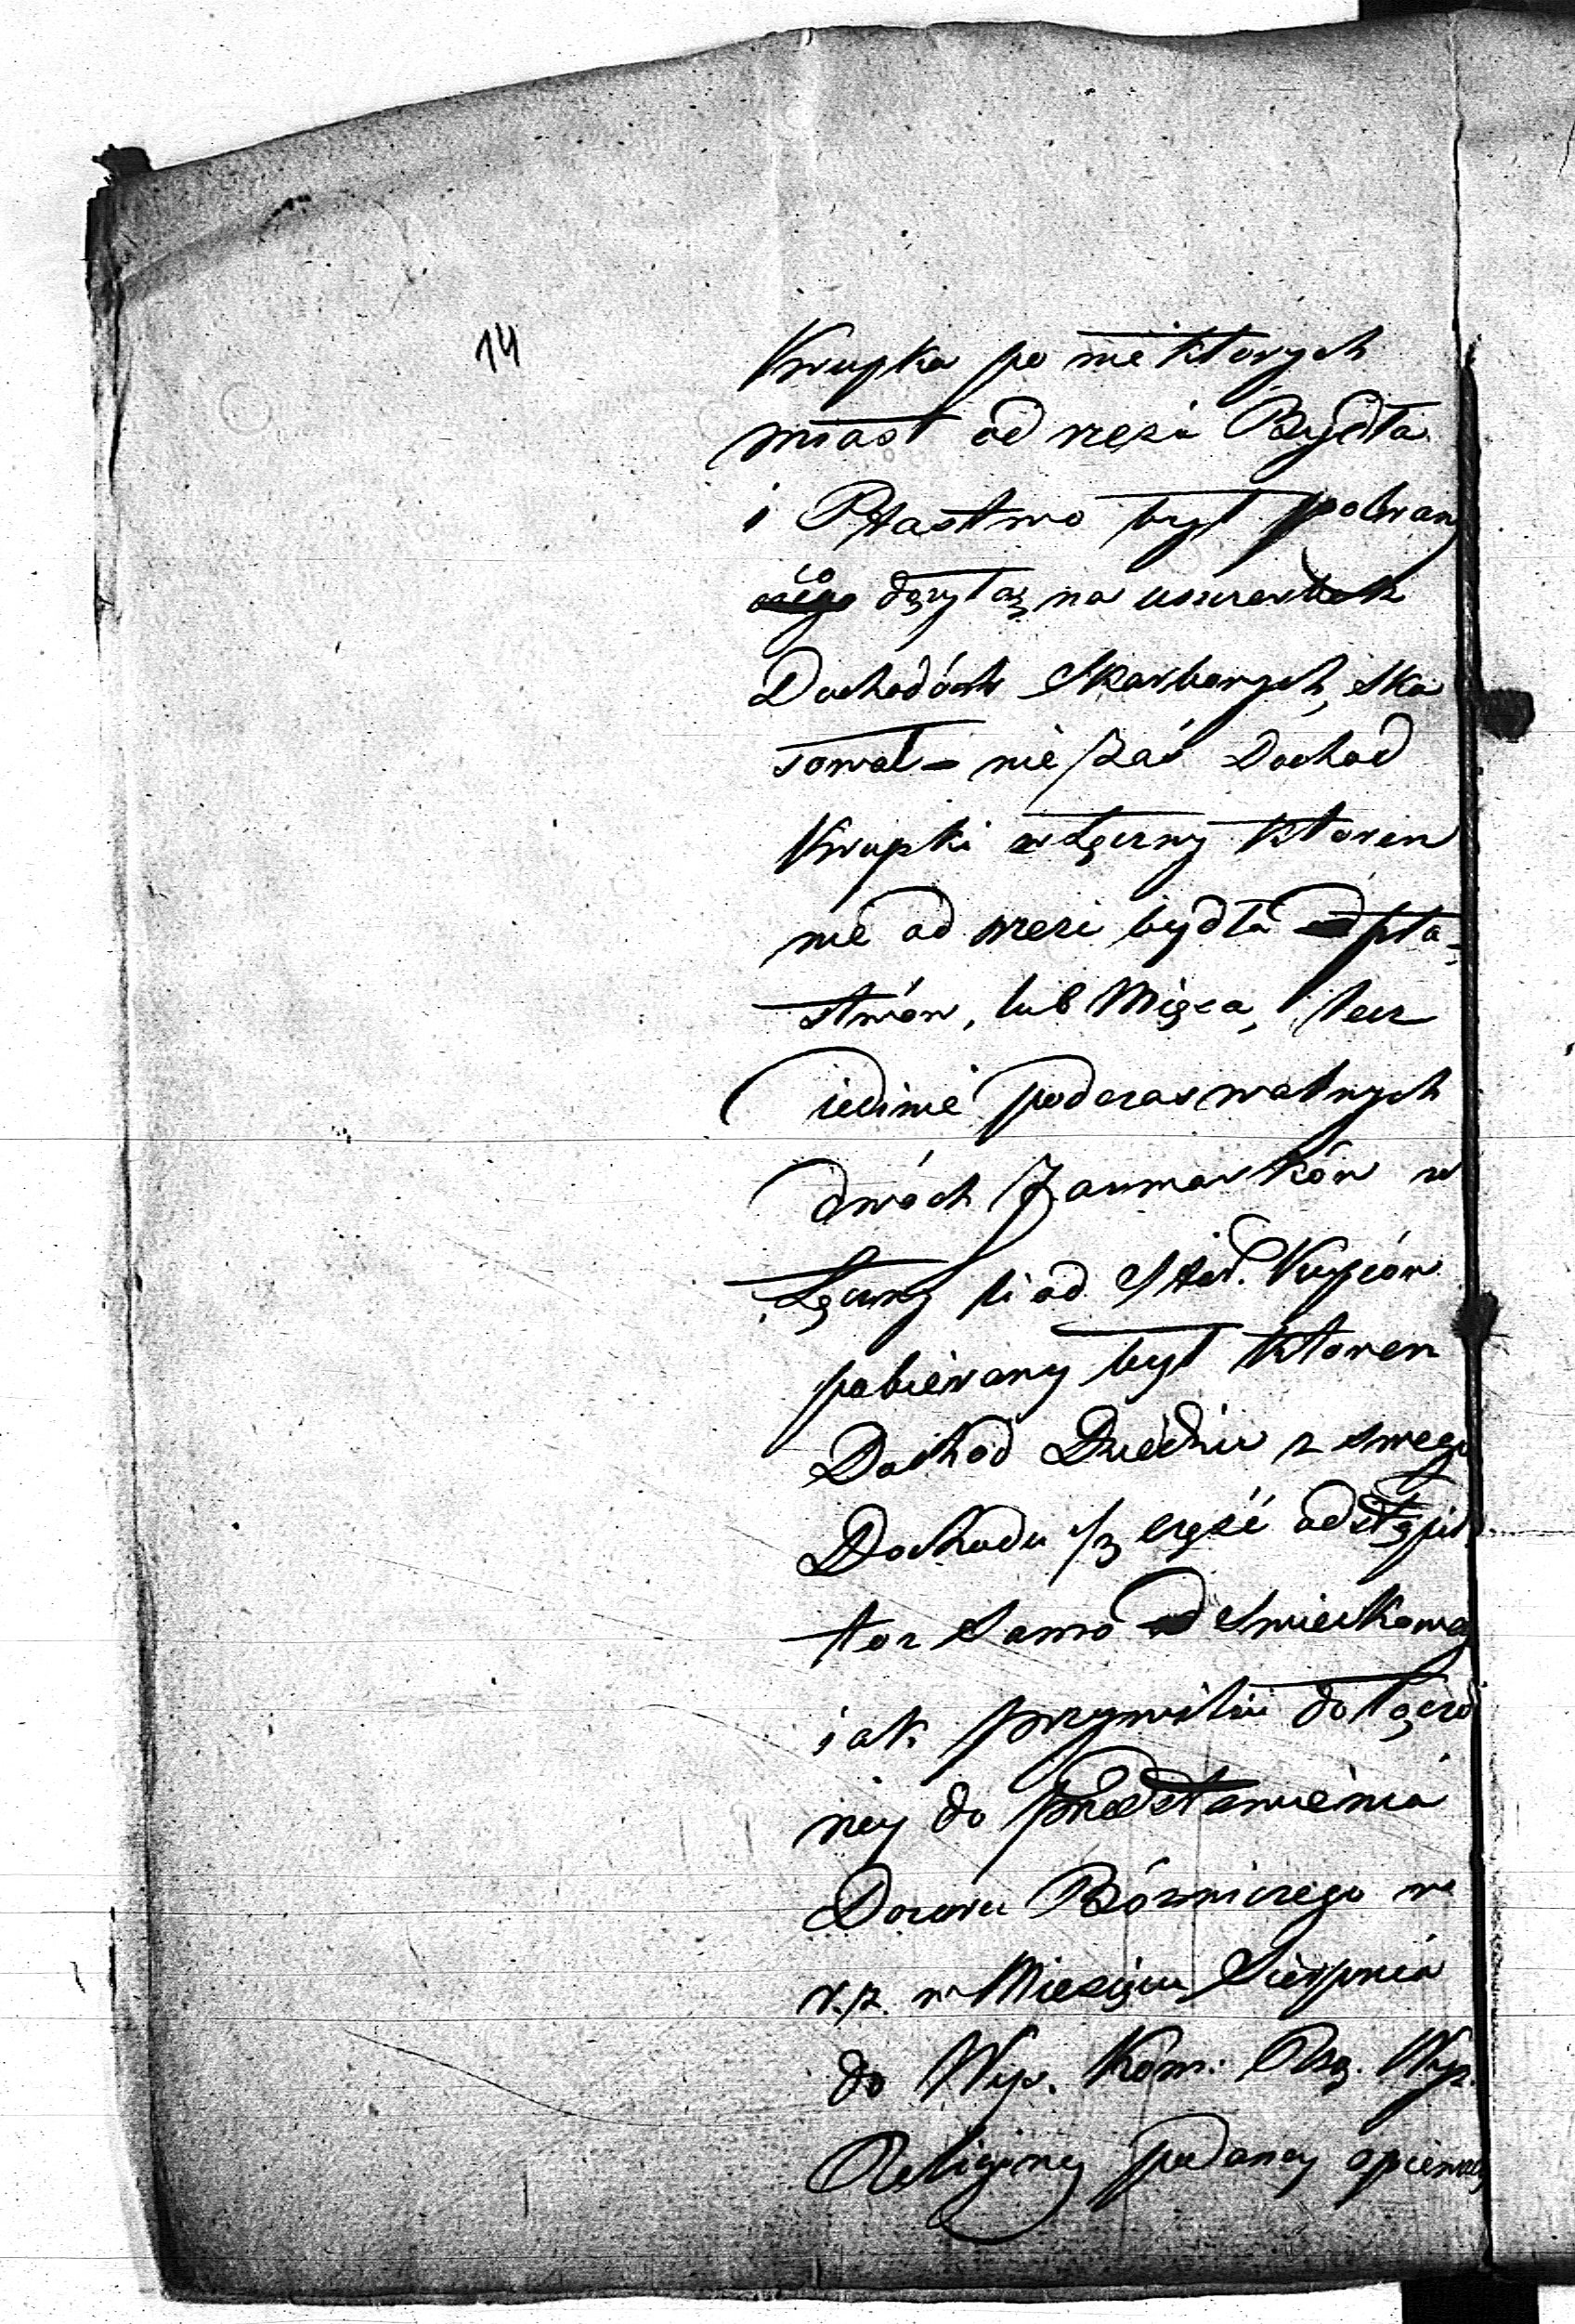 14
Krupka po nie ktorych
miast od rzezi Bydła
i Ptastwo był pobran
co dązyłaz na uszczerbek
Dochodóch Skarbowych, ska
sował – nie zaś Dochod
Krupki w Łęczny ktoren
nie od rzezi bydła pta-
stwów, lub Mięsa, lecz
iedinie podczas walnych
dwóch Jarmarków w
Łęczny li od Star. Kupców
pobierany był ktoren
Dochod Dziedzic z swego
Dochodu 1/3 część odstąpił
toz samo Swieczkowe
iak przywilii dołączo
ney do przedstawienia
Dozoru Bóżniczego w
r.z. w Miesiącu Sierpnia
do Wys. Kom: Rzą. Wyz.
Religyney podaney opiewa